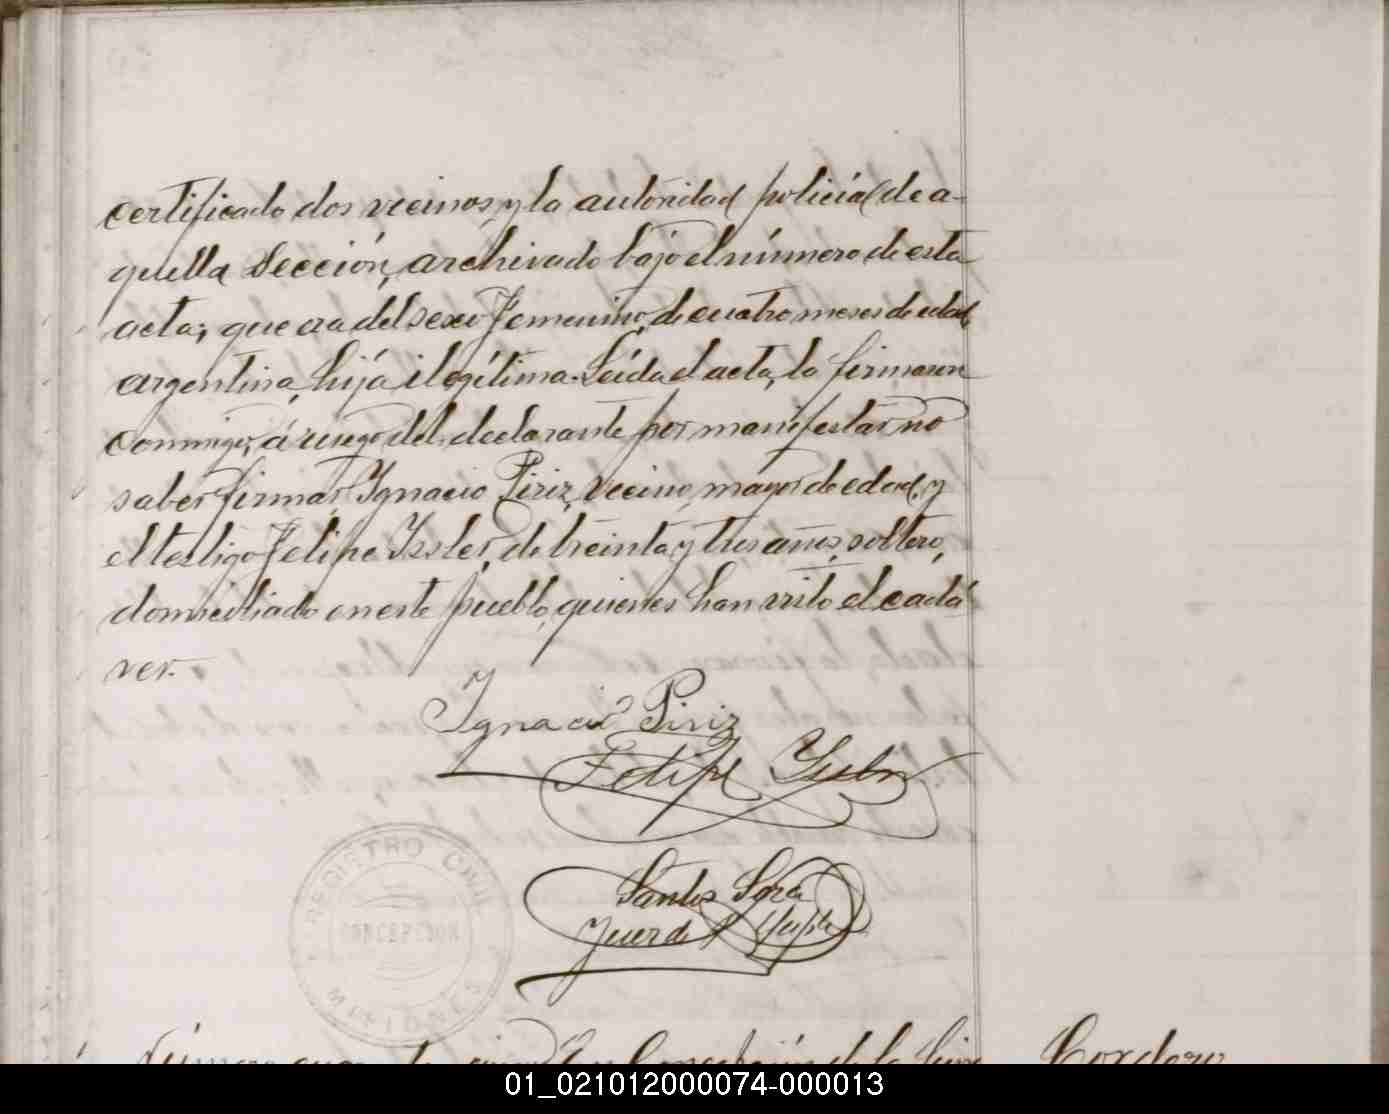 certificado dos vecinos, y la autoridad policial de a-
quella Sección, archivado bajo el número de esta
acta; que era del sexo Femenino, de cuatro meses de edad,
argentina, hija ilegítima. Leída el acta, la firmaron
conmigo, á ruego del declarante por manifestar no
saber firmar, Ygnacio Piriz, vecino, mayor de edad, y
el testigo Felipe Yssler, de treinta y tres años, soltero,
domiciliado en este pueblo, quienes han visto el cadá
ver.-
Ygnacio Piriz
Felipe
Santos
Juez de
REGISTRO CIVIL
CONCEPCION
MISIONES
Número en Concepción de la Sierra
Cordero
01_021012000074-000013